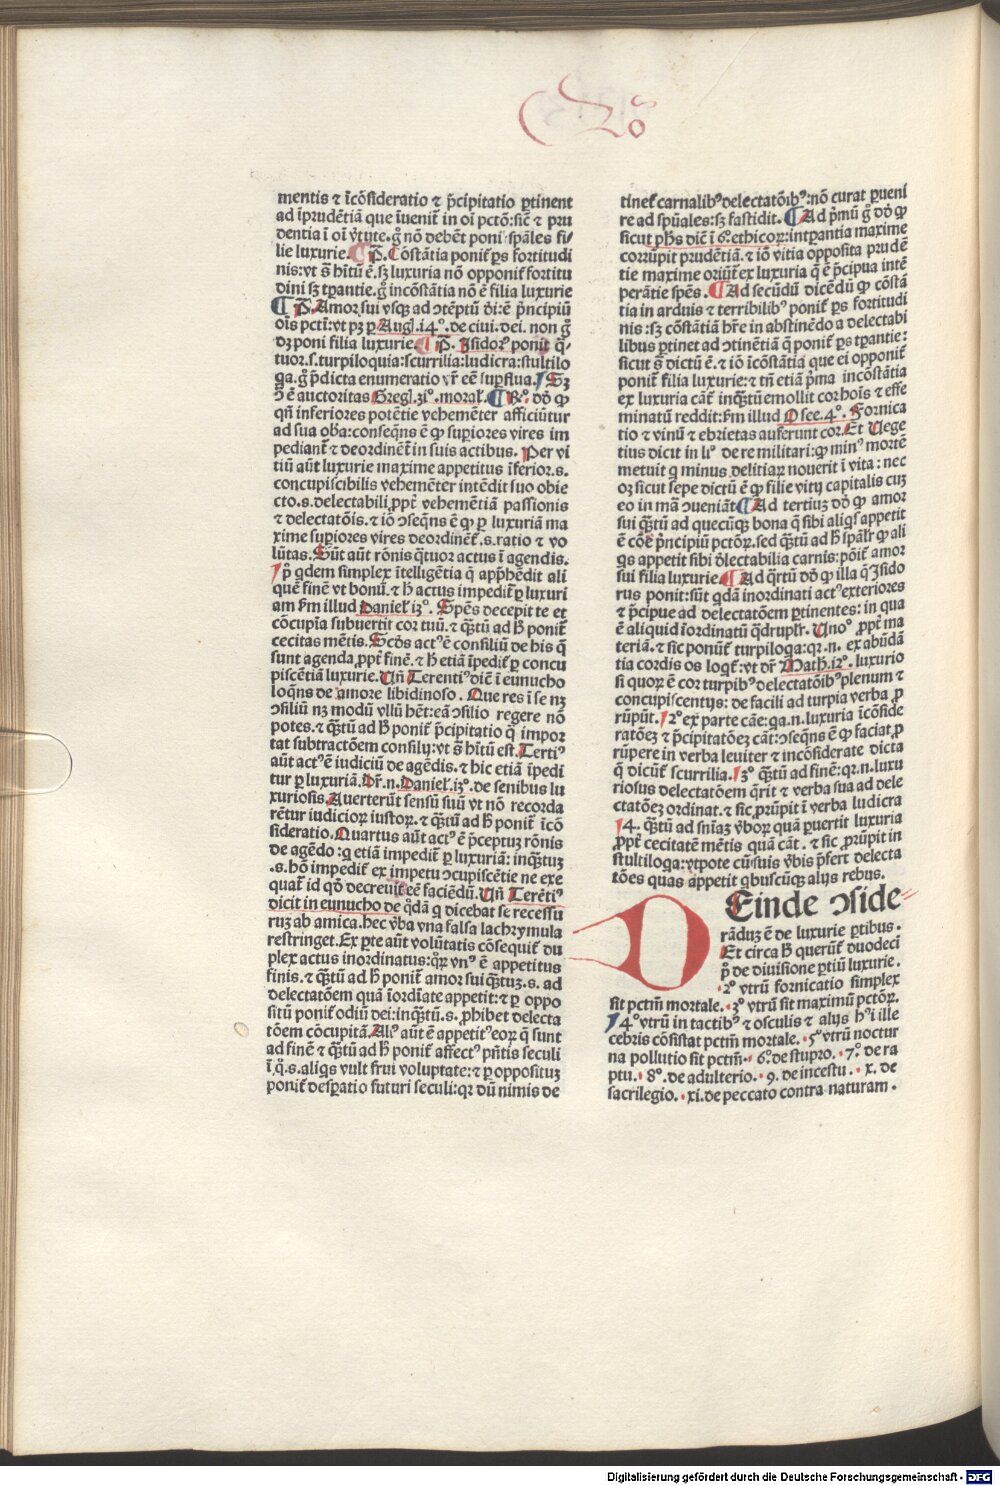 mentis ⁊ ĩcõsideratio ⁊ p̃cipitatio ꝑtinent
ad ĩprudẽtiã que ĩuenit̃ in oĩ pctõ: sic̃ ⁊ pru
dentia ĩ oĩ v̓tute. g̊ nõ debẽt poni spãles fi/
lie luxurie. ¶ P̃. Cõstãtia ponit̃ ꝑs fortitudi
nis: vt s̃ hĩtũ ẽ. sꝫ luxuria nõ opponit̃ fortitu
dini sꝫ tꝑantie. g̊ incõstãtia nõ ẽ filia luxurie
¶ P̃. Amor sui vsqꝫ ad ↄtẽptũ d̓i: ẽ p̃ncipiũ
oĩs pcti: vt pꝫ ꝑ Aug̃. i4°. de ciui. dei. non g̊
dꝫ poni filia luxurie. ¶ P̃. Isidorꝰ ponit q̃
tuor. s. turpiloquia: scurrilia: ludicra: stultilo
ga. g̊ p̃dicta enumeratio vr̃ eẽ suꝑflua. / Sꝫ
ↄ̃ ẽ auctoritas Greg̃. 3i°. moral̃. ¶ R̃°. dõ ꝙ
qñ inferiores potẽtie vehemẽter afficiũtur
ad sua ob̃a: conseq̃ns ẽ ꝙ suꝑiores vires im
pediant̃ ⁊ deordinẽt̃ in suis actibus. Per vi
tiũ aũt luxurie maxime appetitus ĩferior. s.
concupiscibilis vehemẽter intẽdit suo obie
cto. s. delectabili ꝓpt̃ vehemẽtiã passionis
⁊ delectatõis. ⁊ iõ ↄseq̃ns ẽ ꝙ ꝑ luxuriã ma
xime suꝑiores vires deordinẽt̃. s. ratio ⁊ vo
lũtas. Sũt aũt rõnis q̃tuor actus ĩ agendis.
/ p̊ qdem simplex ĩtelligẽtia q̃ app̃hẽdit ali
quẽ finẽ vt bonũ. ⁊ h̃ actus impedit̃ ꝑ luxuri
am ẜm illud Daniel̃ i3°. Spẽs decepit te et
cõcupĩa subuertit cor tuũ. ⁊ q̃tũ ad h̃ ponit̃
cecitas mẽtis. Scd̓s actꝰ ẽ consiliũ de his q̃
sunt agenda ꝓpt̃ finẽ. ⁊ h̃ etiã ĩpedit̃ ꝑ concu
piscẽtiã luxurie. Vñ Terentiꝰ diẽ ĩ eunucho
loq̃ns de amore libidinoso. Que res ĩ se nꝫ
ↄsiliũ nꝫ modũ vllũ hẽt: eã ↄsilio regere nõ
potes. ⁊ q̃tũ ad h̃ ponit̃ p̃cipitatio q̃ impor
tat subtractõem consilij: vt s̃ hĩtũ est. Tertiꝰ
aũt actꝰ ẽ iudiciũ de agẽdis. ⁊ hic etiã ĩpedi
tur ꝑ luxuriã. Dr̃. n. Daniel̃. i3°. de senibus lu
xuriosis. Auerterũt sensũ suũ vt nõ recorda
rẽtur iudicioꝝ iustoꝝ. ⁊ q̃tũ ad h̃ ponit̃ ĩcõ
sideratio. Quartus aũt actꝰ ẽ p̃ceptuꝫ rõnis
de agẽdo: q̃ etiã impedit̃ ꝑ luxuriã: inq̃tuꝫ
.s. hõ impedit̃ ex impetu ↄcupiscẽtie ne exe
quat̃ id qõ decreuit̃ eẽ faciẽdũ. Vñ Terẽtiꝰ
dicit in eunucho de q̃dã q̃ dicebat se recessu
ruꝫ ab amica. hec v̓ba vna falsa lachrymula
restringet. Ex ꝑte aũt volũtatis cõsequit̃ du
plex actus inordinatus: q̃ꝝ vnꝰ ẽ appetitus
finis. ⁊ q̃tũ ad h̃ ponit̃ amor sui q̃tuꝫ. s. ad
delectatõem quã ĩordĩate appetit: ⁊ ꝑ oppo
sitũ ponit̃ odiũ dei: inq̃tũ. s. ꝓhibet delecta
tõem cõcupitã. Alꝰ aũt ẽ appetitꝰ eoꝝ q̃ sunt
ad finẽ ⁊ q̃tũ ad h̃ ponit̃ affectꝰ p̃ntis seculi
ĩ q̃. s. aliqs vult frui voluptate: ⁊ ꝑ oppositũ
ponit̃ desꝑatio futuri seculi: qꝛ dũ nimis de
tinet̃ carnalibꝰ delectatõibꝰ: nõ curat ꝑueni
re ad spũales: sꝫ fastidit. ¶ Ad p̃mũ g̊ dõ ꝙ
sicut ph̃s diẽ ĩ 6. ethicoꝝ: intꝑantia maxime
corrũpit prudẽtiã. ⁊ iõ vitia opposita prudẽ
tie maxime oriũt̃ ex luxuria q̃ ẽ p̃cipua intẽ
perãtie spẽs. ¶ Ad secũdũ dicẽdũ ꝙ cõstã
tia in arduis ⁊ terribilibꝰ ponit̃ ꝑs fortitudi
nis: sꝫ cõstãtiã hr̃e in abstinẽdo a delectabi
libus ꝑtinet ad ↄtinẽtiã q̃ ponit̃ ꝑs tꝑantie:
sicut s̃ dictũ ẽ. ⁊ iõ ĩcõstãtia que ei opponit̃
ponit̃ filia luxurie: ⁊ tñ etiã p̃ma incõstãtia
ex luxuria cãt̃ inq̃tũ emollit cor hoĩs ⁊ effe
minatũ reddit: ẜm illud Osee. 4°. Fornica
tio ⁊ vinũ ⁊ ebrietas auferunt cor. Et Uege
tius dicit in li°. de re militari: ꝙ minꝰ mortẽ
metuit q̃ minus delitiaꝝ nouerit ĩ vita: nec
oꝫ sicut sepe dictũ ẽ ꝙ filie vitij capitalis cuꝫ
eo in mã ↄueniãt ¶ Ad tertiuꝫ dõ ꝙ amor
sui q̃tũ ad quecũqꝫ bona q̃ sibi aliqs appetit
ẽ cõe p̃ncipiũ pctõꝝ. sed q̃tũ ad h̃ spãlr̃ ꝙ ali
qs appetit sibi d̓lectabilia carnis: põit̃ amor
sui filia luxurie. ¶ Ad q̃rtũ dõ ꝙ illa q̃ Isido
rus ponit: sũt qdã inordinati actꝰ exteriores
⁊ p̃cipue ad delectatõem ꝑtinentes: in qua
ẽ aliquid ĩordinatũ q̃druplr̃. Unoº ꝓpt̃ ma
teriã. ⁊ sic ponũt̃ turpiloga: qꝛ. n. ex abũdã
tia cordis os loqt̃: vt dr̃ Math̃. i2°. luxurio
si quoꝝ ẽ cor turpibꝰ delectatõibꝰ plenum ⁊
concupiscentijs: de facili ad turpia verba ꝓ
rũpũt. / 2° ex parte cãe: qa. n. luxuria ĩcõside
ratõeꝫ ⁊ p̃cipitatõeꝫ cãt: ↄseq̃ns ẽ ꝙ faciat ꝓ
rũpere in verba leuiter ⁊ incõsiderate dicta
q̃ dicũt̃ scurrilia. / 3° q̃tũ ad finẽ: qꝛ. n. luxu
riosus delectatõem q̃rit ⁊ verba sua ad dele
ctatõeꝫ ordinat. ⁊ sic ꝓrũpit ĩ verba ludicra
/ 4. q̃tũ ad snĩaꝫ v̓boꝝ quã ꝑuertit luxuria
ꝓpt̃ cecitatẽ mẽtis quã cãt. ⁊ sic ꝓrũpit in
stultiloga: vtpote cũ suis v̓bis p̃fert delecta
tões quas appetit qbuscũqꝫ alijs rebus.
Deinde ↄside
rãduꝫ ẽ de luxurie ꝑtibus.
Et circa h̃ querũt̃ duodeci
p̊ de diuisione ꝑtiũ luxurie.
2° vtrũ fornicatio simplex
sit pctm̃ mortale. 3° vtrũ sit maximũ pctõꝝ.
/ 4° vtrũ in tactibꝰ ⁊ osculis ⁊ alijs hꝰi ille
cebris cõsistat pctm̃ mortale. 5° vtrũ noctur
na pollutio sit pctm̃. 6° de stupro. 7° de ra
ptu. 8°. de adulterio. 9. de incestu. x. de
sacrilegio. xi. de peccato contra naturam.
Digitalisierung gefördert durch die Deutsche Forschungsgemeinschaft - DFG